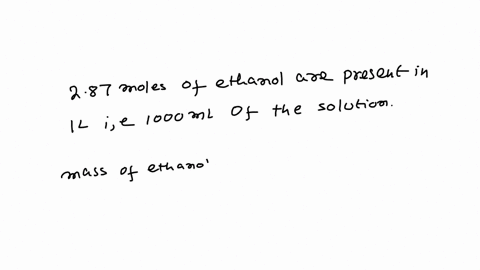 2.87 moles of ethanol are present in
1L i,e 1000mL Of the solution.
mass of ethano